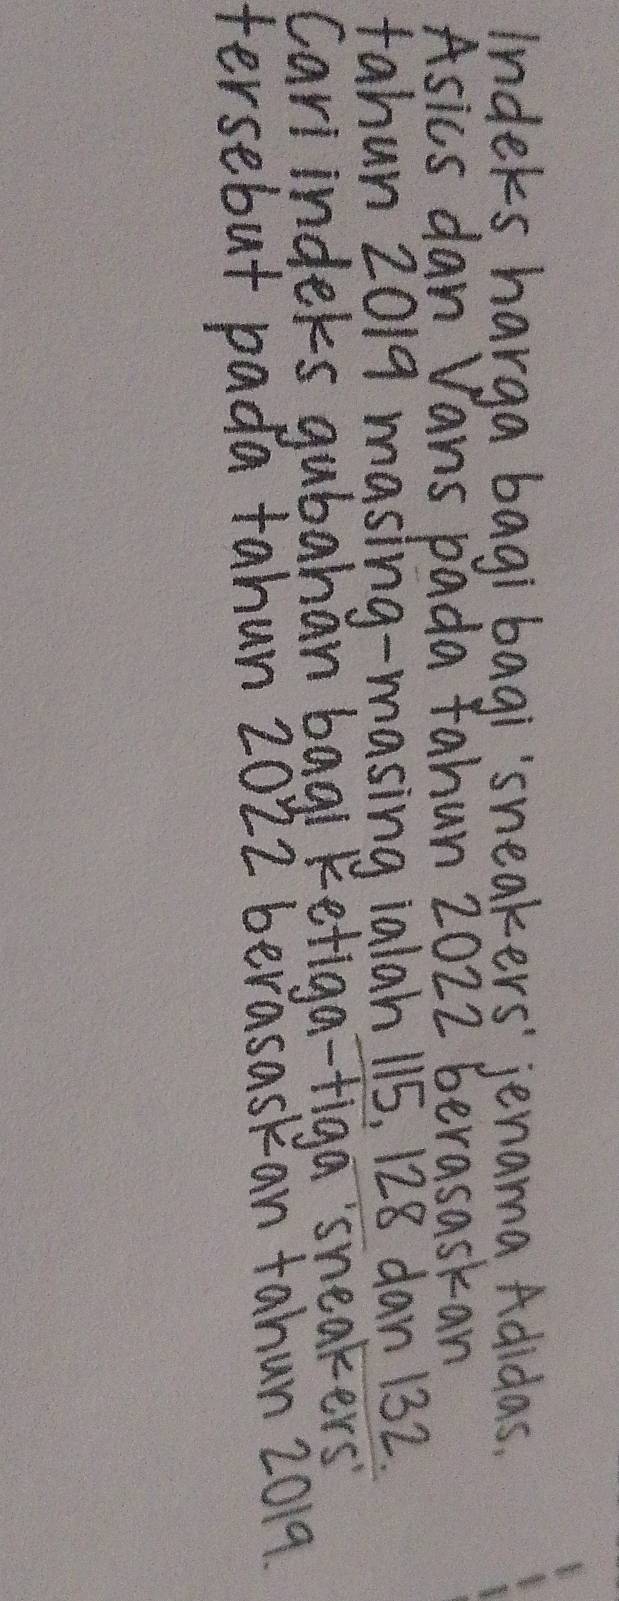 Indeks harga bagi bagi 'sneakers' jenama Adidas,
Asics dan Vans pada tahun 2022 berasaskan
tahun 2019 masing-masing ialah 115, 128 dan 132.
Cari indeks gubahan bagi ketiga-tiga 'sneakers'
tersebut pada tahun 2022 berasaskan tahun 2019.